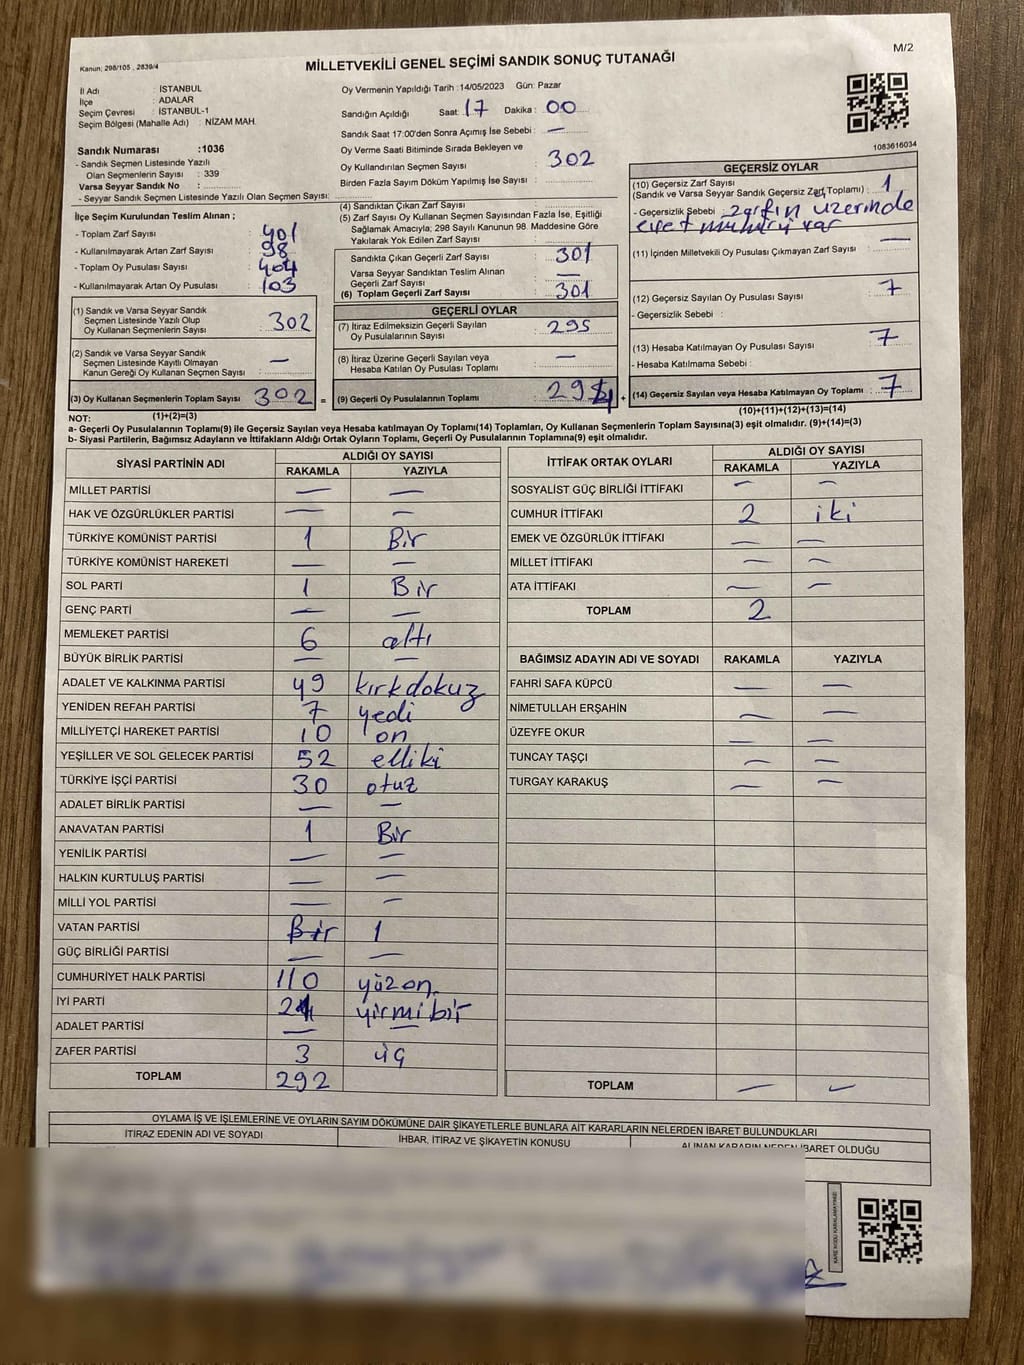 M/2
Kanun: 298/105 , 2839/4
MİLLETVEKİLİ GENEL SEÇİMİ SANDIK SONUÇ TUTANAĞI
İl Adı : İSTANBUL
İlçe : ADALAR
Seçim Çevresi : İSTANBUL-1
Seçim Bölgesi (Mahalle Adı) : NİZAM MAH.
Sandık Numarası :1036
- Sandık Seçmen Listesinde Yazılı
Olan Seçmenlerin Sayısı : 339
Varsa Seyyar Sandık No :
- Seyyar Sandık Seçmen Listesinde Yazılı Olan Seçmen Sayısı:
Oy Vermenin Yapıldığı Tarih :14/05/2023 Gün: Pazar
Sandığın Açıldığı Saat: 17 Dakika : 00
Sandık Saat 17:00'den Sonra Açımış İse Sebebi : —
Oy Verme Saati Bitiminde Sırada Bekleyen ve
Oy Kullandırılan Seçmen Sayısı : 302
Birden Fazla Sayım Döküm Yapılmış İse Sayısı :
1083616034
İlçe Seçim Kurulundan Teslim Alınan ;
- Toplam Zarf Sayısı : 401
- Kullanılmayarak Artan Zarf Sayısı : 98
- Toplam Oy Pusulası Sayısı : 404
- Kullanılmayarak Artan Oy Pusulası : 103
(1) Sandık ve Varsa Seyyar Sandık
Seçmen Listesinde Yazılı Olup
Oy Kullanan Seçmenlerin Sayısı : 302
(2) Sandık ve Varsa Seyyar Sandık
Seçmen Listesinde Kayıtlı Olmayan
Kanun Gereği Oy Kullanan Seçmen Sayısı : —
(3) Oy Kullanan Seçmenlerin Toplam Sayısı : 302 =
(4) Sandıktan Çıkan Zarf Sayısı :
(5) Zarf Sayısı Oy Kullanan Seçmen Sayısından Fazla İse, Eşitliği
Sağlamak Amacıyla; 298 Sayılı Kanunun 98. Maddesine Göre
Yakılarak Yok Edilen Zarf Sayısı :
Sandıkta Çıkan Geçerli Zarf Sayısı : 301
Varsa Seyyar Sandıktan Teslim Alınan
Geçerli Zarf Sayısı : —
(6) Toplam Geçerli Zarf Sayısı : 301
GEÇERLİ OYLAR
(7) İtiraz Edilmeksizin Geçerli Sayılan
Oy Pusulalarının Sayısı : 295
(8) İtiraz Üzerine Geçerli Sayılan veya
Hesaba Katılan Oy Pusulası Toplamı : —
(9) Geçerli Oy Pusulalarının Toplamı : 294 +
GEÇERSİZ OYLAR
(10) Geçersiz Zarf Sayısı
(Sandık ve Varsa Seyyar Sandık Geçersiz Zarf Toplamı) : 1
- Geçersizlik Sebebi : zarfın üzerinde
evet mührü var
(11) İçinden Milletvekili Oy Pusulası Çıkmayan Zarf Sayısı : —
(12) Geçersiz Sayılan Oy Pusulası Sayısı : 7
- Geçersizlik Sebebi :
(13) Hesaba Katılmayan Oy Pusulası Sayısı : 7
- Hesaba Katılmama Sebebi :
(14) Geçersiz Sayılan veya Hesaba Katılmayan Oy Toplamı : 7
NOT: (1)+(2)=(3)
(10)+(11)+(12)+(13)=(14)
a- Geçerli Oy Pusulalarının Toplamı(9) ile Geçersiz Sayılan veya Hesaba katılmayan Oy Toplamı(14) Toplamları, Oy Kullanan Seçmenlerin Toplam Sayısına(3) eşit olmalıdır. (9)+(14)=(3)
b- Siyasi Partilerin, Bağımsız Adayların ve İttifakların Aldığı Ortak Oyların Toplamı, Geçerli Oy Pusulalarının Toplamına(9) eşit olmalıdır.
SİYASİ PARTİNİN ADI ALDIĞI OY SAYISI
RAKAMLA YAZIYLA
MİLLET PARTİSİ — —
HAK VE ÖZGÜRLÜKLER PARTİSİ — —
TÜRKİYE KOMÜNİST PARTİSİ 1 Bir
TÜRKİYE KOMÜNİST HAREKETİ — —
SOL PARTİ 1 Bir
GENÇ PARTİ — —
MEMLEKET PARTİSİ 6 altı
BÜYÜK BİRLİK PARTİSİ — —
ADALET VE KALKINMA PARTİSİ 49 kırkdokuz
YENİDEN REFAH PARTİSİ 7 yedi
MİLLİYETÇİ HAREKET PARTİSİ 10 on
YEŞİLLER VE SOL GELECEK PARTİSİ 52 elliki
TÜRKİYE İŞÇİ PARTİSİ 30 otuz
ADALET BİRLİK PARTİSİ — —
ANAVATAN PARTİSİ 1 Bir
YENİLİK PARTİSİ — —
HALKIN KURTULUŞ PARTİSİ — —
MİLLİ YOL PARTİSİ — —
VATAN PARTİSİ Bir 1
GÜÇ BİRLİĞİ PARTİSİ — —
CUMHURİYET HALK PARTİSİ 110 yüzon
İYİ PARTİ 21 yirmibir
ADALET PARTİSİ — —
ZAFER PARTİSİ 3 üç
TOPLAM 292
İTTİFAK ORTAK OYLARI ALDIĞI OY SAYISI
RAKAMLA YAZIYLA
SOSYALİST GÜÇ BİRLİĞİ İTTİFAKI — —
CUMHUR İTTİFAKI 2 iki
EMEK VE ÖZGÜRLÜK İTTİFAKI — —
MİLLET İTTİFAKI — —
ATA İTTİFAKI — —
TOPLAM 2
BAĞIMSIZ ADAYIN ADI VE SOYADI RAKAMLA YAZIYLA
FAHRİ SAFA KÜPCÜ — —
NİMETULLAH ERŞAHİN — —
ÜZEYFE OKUR — —
TUNCAY TAŞÇI — —
TURGAY KARAKUŞ — —
TOPLAM — —
OYLAMA İŞ VE İŞLEMLERİNE VE OYLARIN SAYIM DÖKÜMÜNE DAİR ŞİKAYETLERLE BUNLARA AİT KARARLARIN NELERDEN İBARET BULUNDUKLARI
İTİRAZ EDENİN ADI VE SOYADI İHBAR, İTİRAZ VE ŞİKAYETİN KONUSU ALINAN KARARIN NEDEN İBARET OLDUĞU
KARE KODU KARALAMAYINIZ!